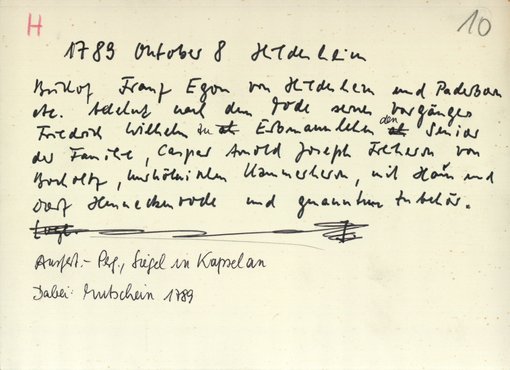 H
10
1789 Oktober 8 Hildesheim
Bischof Franz Egon von Hildesheim und Paderborn
etc. belehnt nach dem Tode seines Vorgängers
Friedrich Wilhelm zu Erbmannlehen den Senior
der Familie, Caspar Arnold Joseph Freiherrn von
Bocholtz, kurkölnischen Kammerherrn, mit Haus und
Dorf Henneckenrode und genanntem Zubehör.
Ausfert.- Perg., Siegel in Kapsel an
Dabei: Mutschein 1789